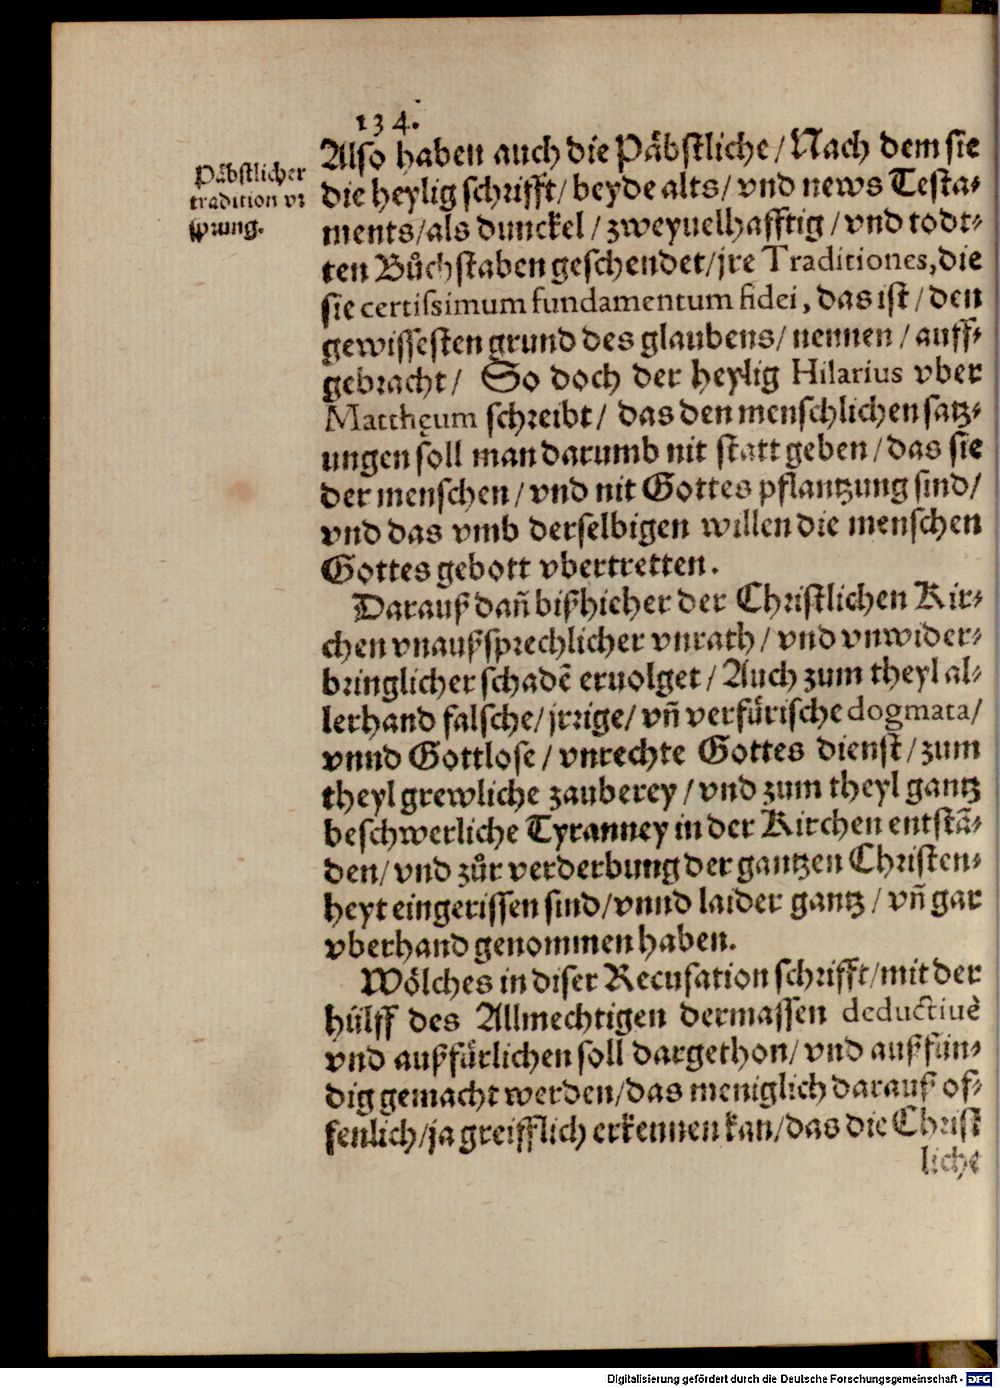 134.
Päbstlicher
tradition vr
sprung.
Also haben auch die Päbstliche/ Nach dem sie
die heylig schrifft/ beyde alts/ vnd news Testa-
ments/ als dunckel/ zweyuelhafftig/ vnd todt-
ten Bůchstaben geschendet/ jre Traditiones, die
sie certissimum fundamentum fidei, das ist/ den
gewissesten grund des glaubens/ nennen/ auff-
gebracht/ So doch der heylig Hilarius vber
Matthęum schreibt/ das den menschlichen satz-
ungen soll man darumb nit statt geben/ das sie
der menschen/ vnd nit Gottes pflantzung sind/
vnd das vmb derselbigen willen die menschen
Gottes gebott vbertretten.
Darauß dañ bißhieher der Christlichen Kir-
chen vnaußsprechlicher vnrath/ vnd vnwider-
bringlicher schadẽ eruolget/ Auch zum theyl al-
lerhand falsche/ jrrige/ vñ verfürische dogmata/
vnnd Gottlose/ vnrechte Gottes dienst/ zum
theyl grewliche zauberey/ vnd zum theyl gantz
beschwerliche Tyranney in der Kirchen entstã-
den/ vnd zůr verderbung der gantzen Christen-
heyt eingerissen sind/ vnnd laider gantz/ vñ gar
vberhand genommen haben.
Wölches in diser Recusation schrifft/ mit der
hülff des Allmechtigen dermassen deductiuè
vnd außfürlichen soll dargethon/ vnd außfün-
dig gemacht werden/ das meniglich darauß of-
fenlich/ ja greifflich erkennen kan/ das die Christ
liche
Digitalisierung gefördert durch die Deutsche Forschungsgemeinschaft - DFG